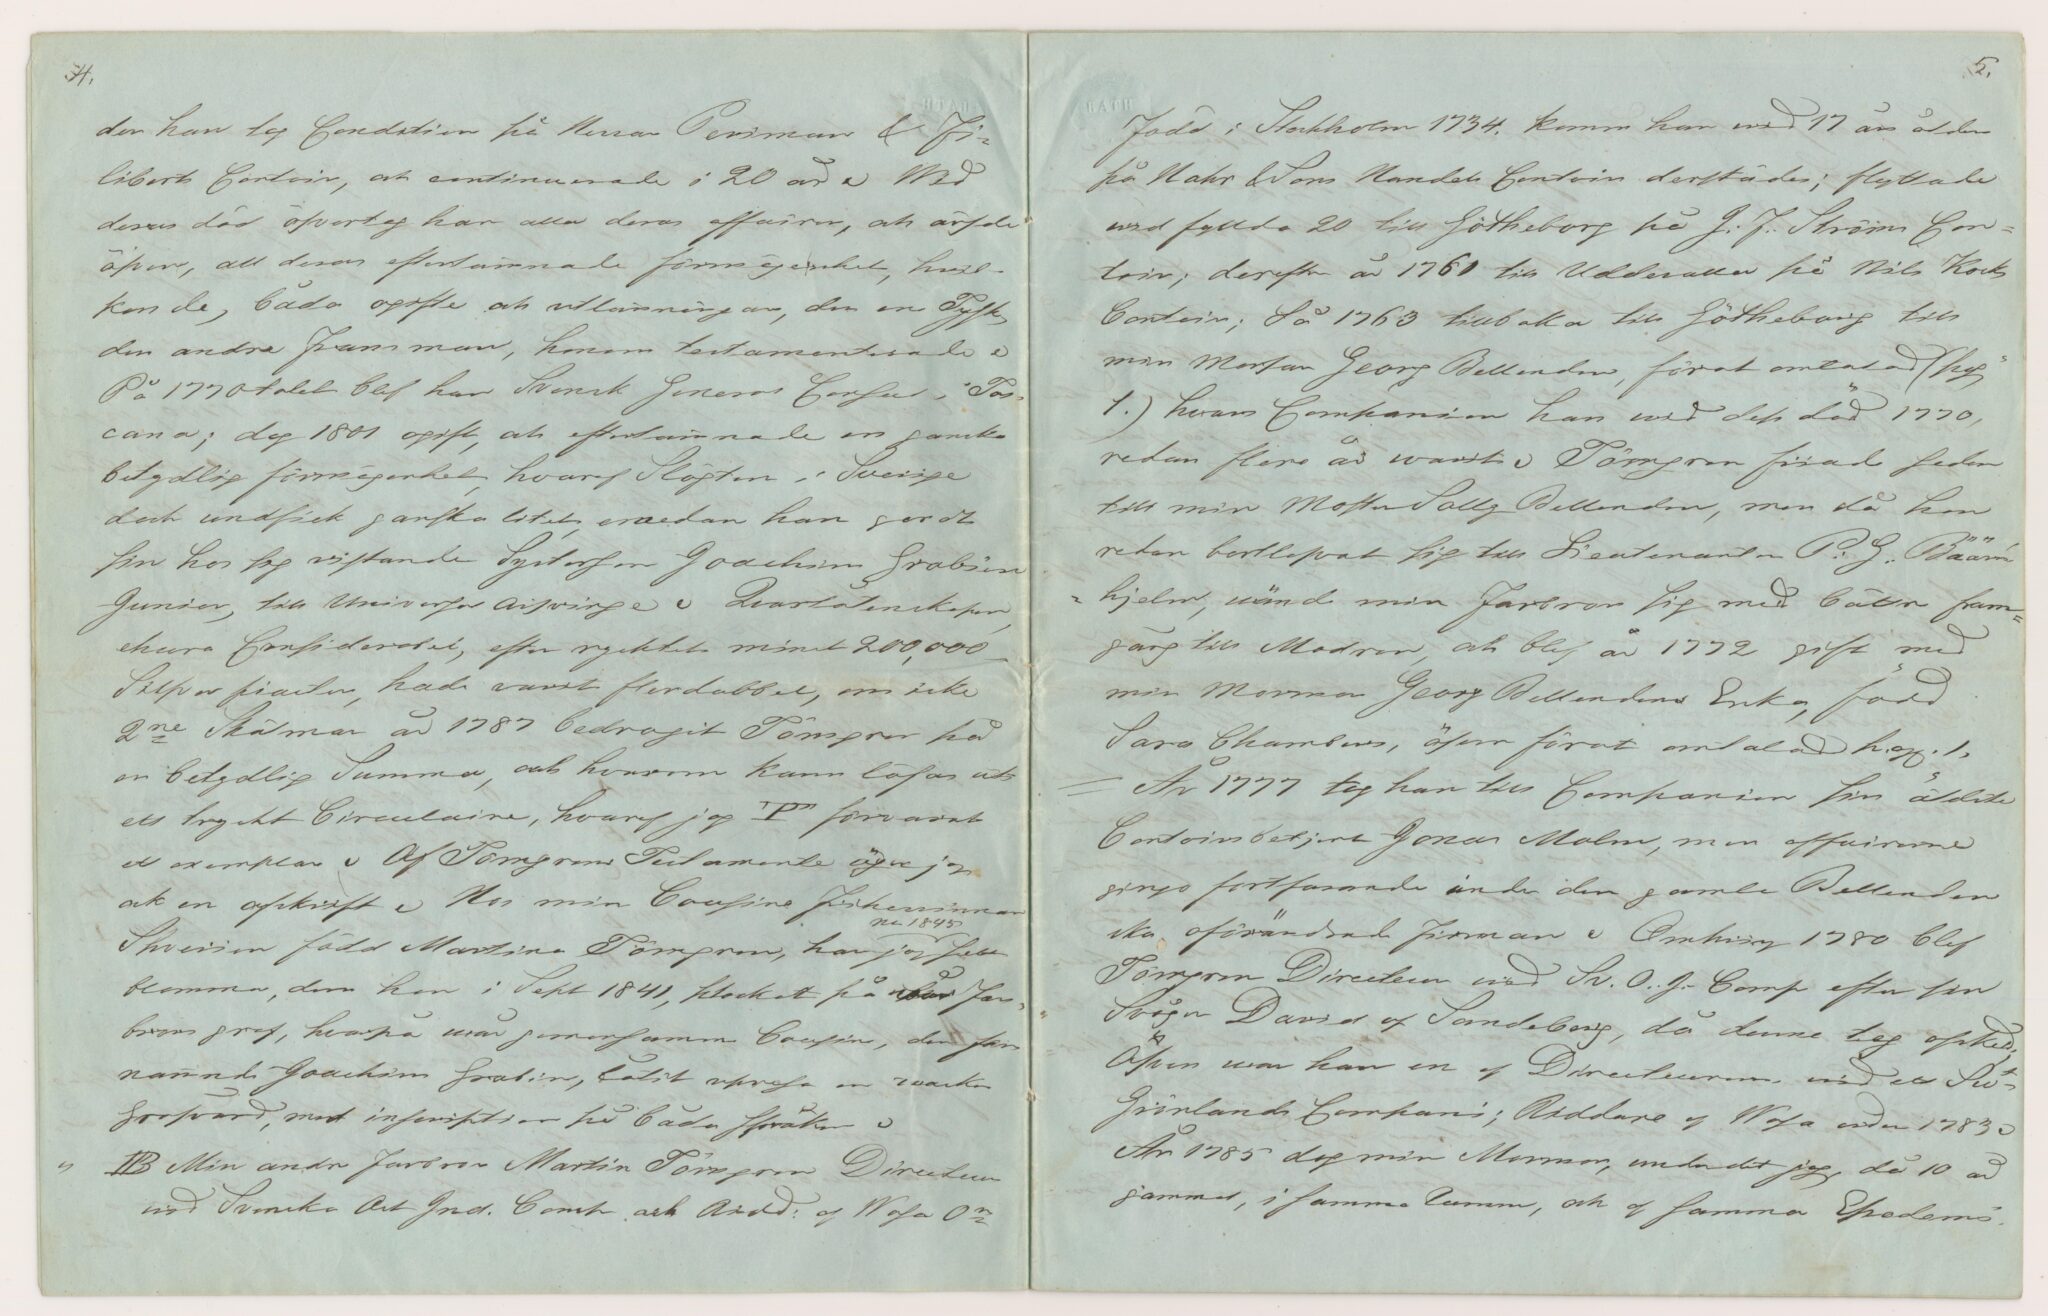 4.
den han tog Condition på Herrar Periman & Fi=
liberts Contoir, och continuerade i 20 år. Wid
deras död öfvertog han alla deras affairer, och ärfde
äfven, all deras efterlämnade förmögenhet, hvil-
ken de, båda ogifte och utlänningar, den en Tysk,
den andre Fransman, honom testamenterade.
På 1770 talet blef han Svensk General Consul i Tos-
cana; dog 1801 ogift, och efterlämnade en ganska
betydlig förmögenhet, hvaraf Slägten i Sverige
dock undfick ganska litet, emedan han gjordt
sin hos sig vistande Systerson Joachim Grabien
Junior, till Universal arfvinge. Qvarlåtenskapen,
ehuru Considerabel, efter ryktet minst 200,000
Silfver piaster, hade varit flerdubbel, om icke
2ne Skälmar år 1787 bedragit Törngren på
en betydlig Summa, och hvarom kann läsas uti
ett tryckt Circulaire, hvaraf jag förvarat
et exemplar. Af Törngrens Testamente äger jag
ock en afskrift. Hos min Cousine
född Martina Törngren, har jag nu 1845 sett
blomma, dem hon i Sept 1841, plockat på vår Far-
brors graf, hvarpå vår gemensamma Cousin, den förr
nämnde Joachim Grabien, låtit uppresa en vacker
Grafvård, med inscription på båda språken.
IIB Min andre Farbror Martin Törngren Directeur
vid Svenska Ost Ind. Comp. och Ridd: af Wasa On
5.
Född i Stockholm 1734. Komm han vid 17 års ålder
på Hahr & Sons Handels Contoir derstädes; flyttade
vid fyllda 20 till Götheborg på G. F. Ströms Con=
toir; derefter år 1761 till Uddevalla på Nils Kocks
Contoir; Så 1763 tillbaka till Götheborg till
min Morfar Georg Bellenden, förut omtalad (pag
1.) hvars Companion han vid dess död 1770,
redan flere år varit. Törngren friade sedan
till min Moster Sally Bellenden, men då hon
redan bortlofvat sig till Lieutenanten P. G. Bäärn
=hjelm, vände min Farbror sig med bättre fram=
gång till Modren, och blef år 1772 gift med
min Mormor Georg Bellendens Enka, född
Sara Chambers, äfven förut omtalad pag. 1.
År 1777 tog han till Companion sin äldste
Contoirsbetjent Jonas Malm, men affairerne
gingo fortfarande under den gamla Bellenden
ska oförändrade Firman. Omkring 1780 blef
Törngren Directeur vid Sv. O. I. Comp efter sin
Svåger David af Sandeberg, då denne tog afsked;
Äfven var han en af Directeurerne vid ett
Grönlands Compani; Riddare af Wasa orden 1783.
År 1785 dog min Mormor, under det jag, då 10 år
gammal, i samma rumm, och af samma Epedemi